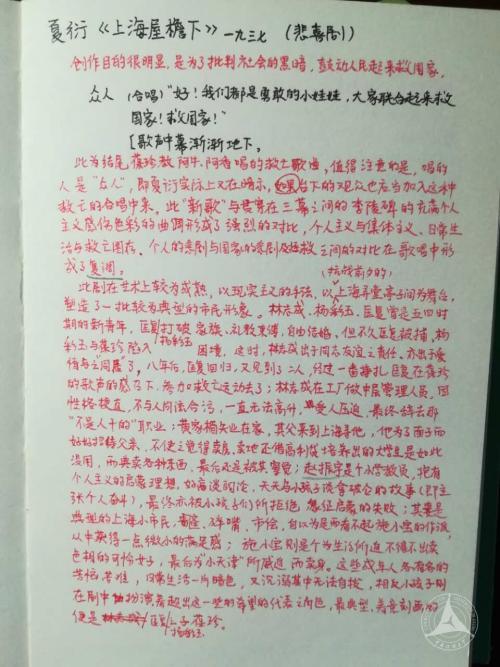 夏衍《上海屋檐下》一九三七 (悲喜剧)
创作目的很明显,是为了批判社会的黑暗,鼓动人民起来救国家.
众人 (合唱)"好!我们都是勇敢的小娃娃,大家联合起来救
国家!救国家!"
[歌声中幕渐渐地下.
此为结尾葆珍教阿牛、阿香唱的救亡歌曲,值得注意的是,唱的
人是"众人",即夏衍实际上又在暗示,如果台下的观众也应当加入这种
救亡的合唱中来.此"新歌"与贯穿在三幕之间的李陵碑的充满个人
主义感伤色彩的曲调形成了强烈的对比,个人主义与集体主义、日常生
活与救亡图存、个人的悲剧与国家的悲剧及拯救之间的对比在歌唱中形
成了复调.
(抗战前夕的)
此剧在艺术上较为成熟,以现实主义的手法,以上海弄堂亭子间为舞台,
塑造了一批较为典型的市民形象.林志成、杨彩玉、匡复曾是五四时
期的新青年,匡复打破家族、礼教束缚,自由结婚,但不久匡复被捕,杨
彩玉与葆珍陷入困境,这时,林志成出于同志友谊之责任,亦出于爱
情与之"同居"了,八年后,匡复回归,又见到了二人,经过一番挣扎,匡复在葆珍
的歌声的感召下,参加救亡运动去了;林志成在工厂做中层管理人员,因
性格梗直,不与人同流合污,一直无法高升,受人压迫,最终辞去那
"不是人干的"职业;黄家楣失业在家,其父来到上海寻他,他为了面子而
好好招待父亲,不使之觉得卖房、卖地还借高利贷培养出的大学生是如此
没用,而典卖各种东西,最后还是被其察觉;赵振宇是个小学教员,抱有
个人主义的启蒙理想,好高谈阔论,天天与小孩子谈拿破仑的故事(即主
张个人奋斗),最终亦被小孩子们所拒绝,象征启蒙的失败;其妻是
典型的上海小市民,碎嘴、市侩,自以为是而看不起施小宝的作派,
从中获得一点微小的满足感;施小宝则是个为生活所迫不得不出卖
色相的可怜女子,最后为"小天津"所威迫而卖身.这些成年人各有各的
苦恼、苦难,日常生活一片暗色,又沉溺其中无法自拔,相反小孩子则
在剧中扮演着超出这一些的希望的代表之角色,最典型、着意刻画的
便是匡复之子葆珍.